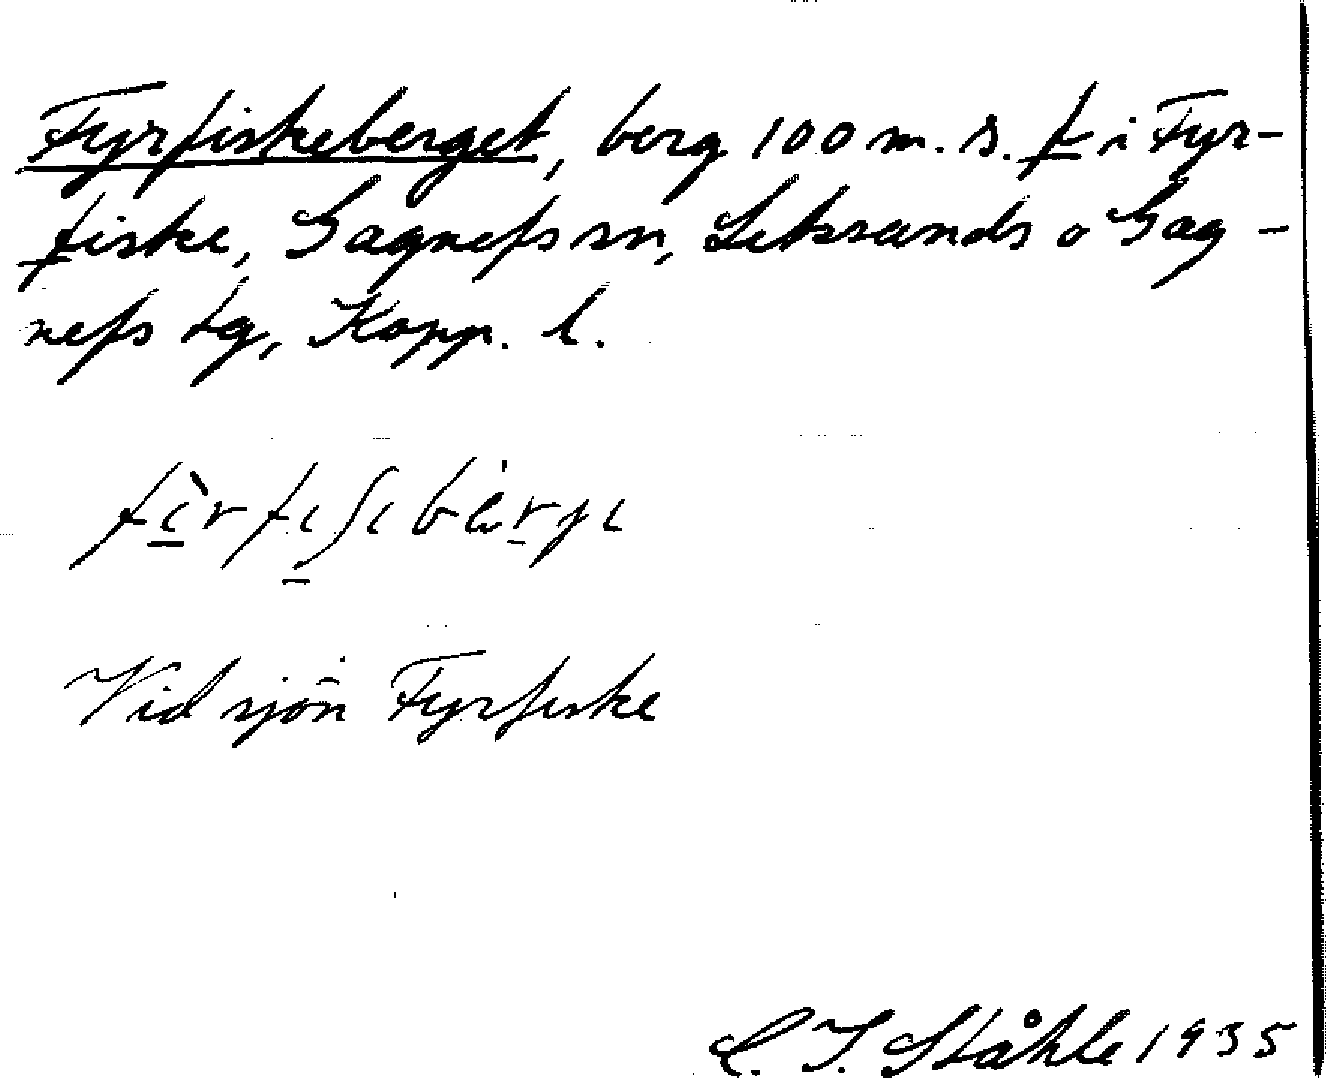 Fyrfiskeberget, berg 100 m. s. f i Fyr-
fiske, Gagnefs sn, Leksands o Gag-
nefs tg, Kopp. l.
Vid sjön Fyrfiske
C. I. Ståhle 1935